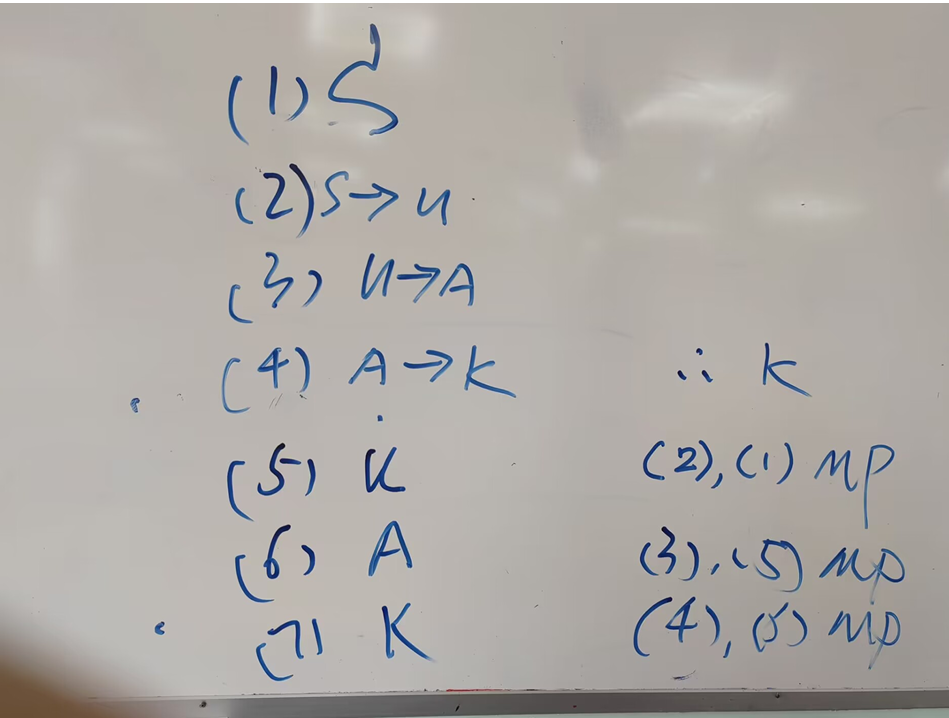 (1) S
(2) S→U
(3) U→A
(4) A→K ∴ K
(5) U (2), (1) MP
(6) A (3), (5) MP
(7) K (4), (6) MP